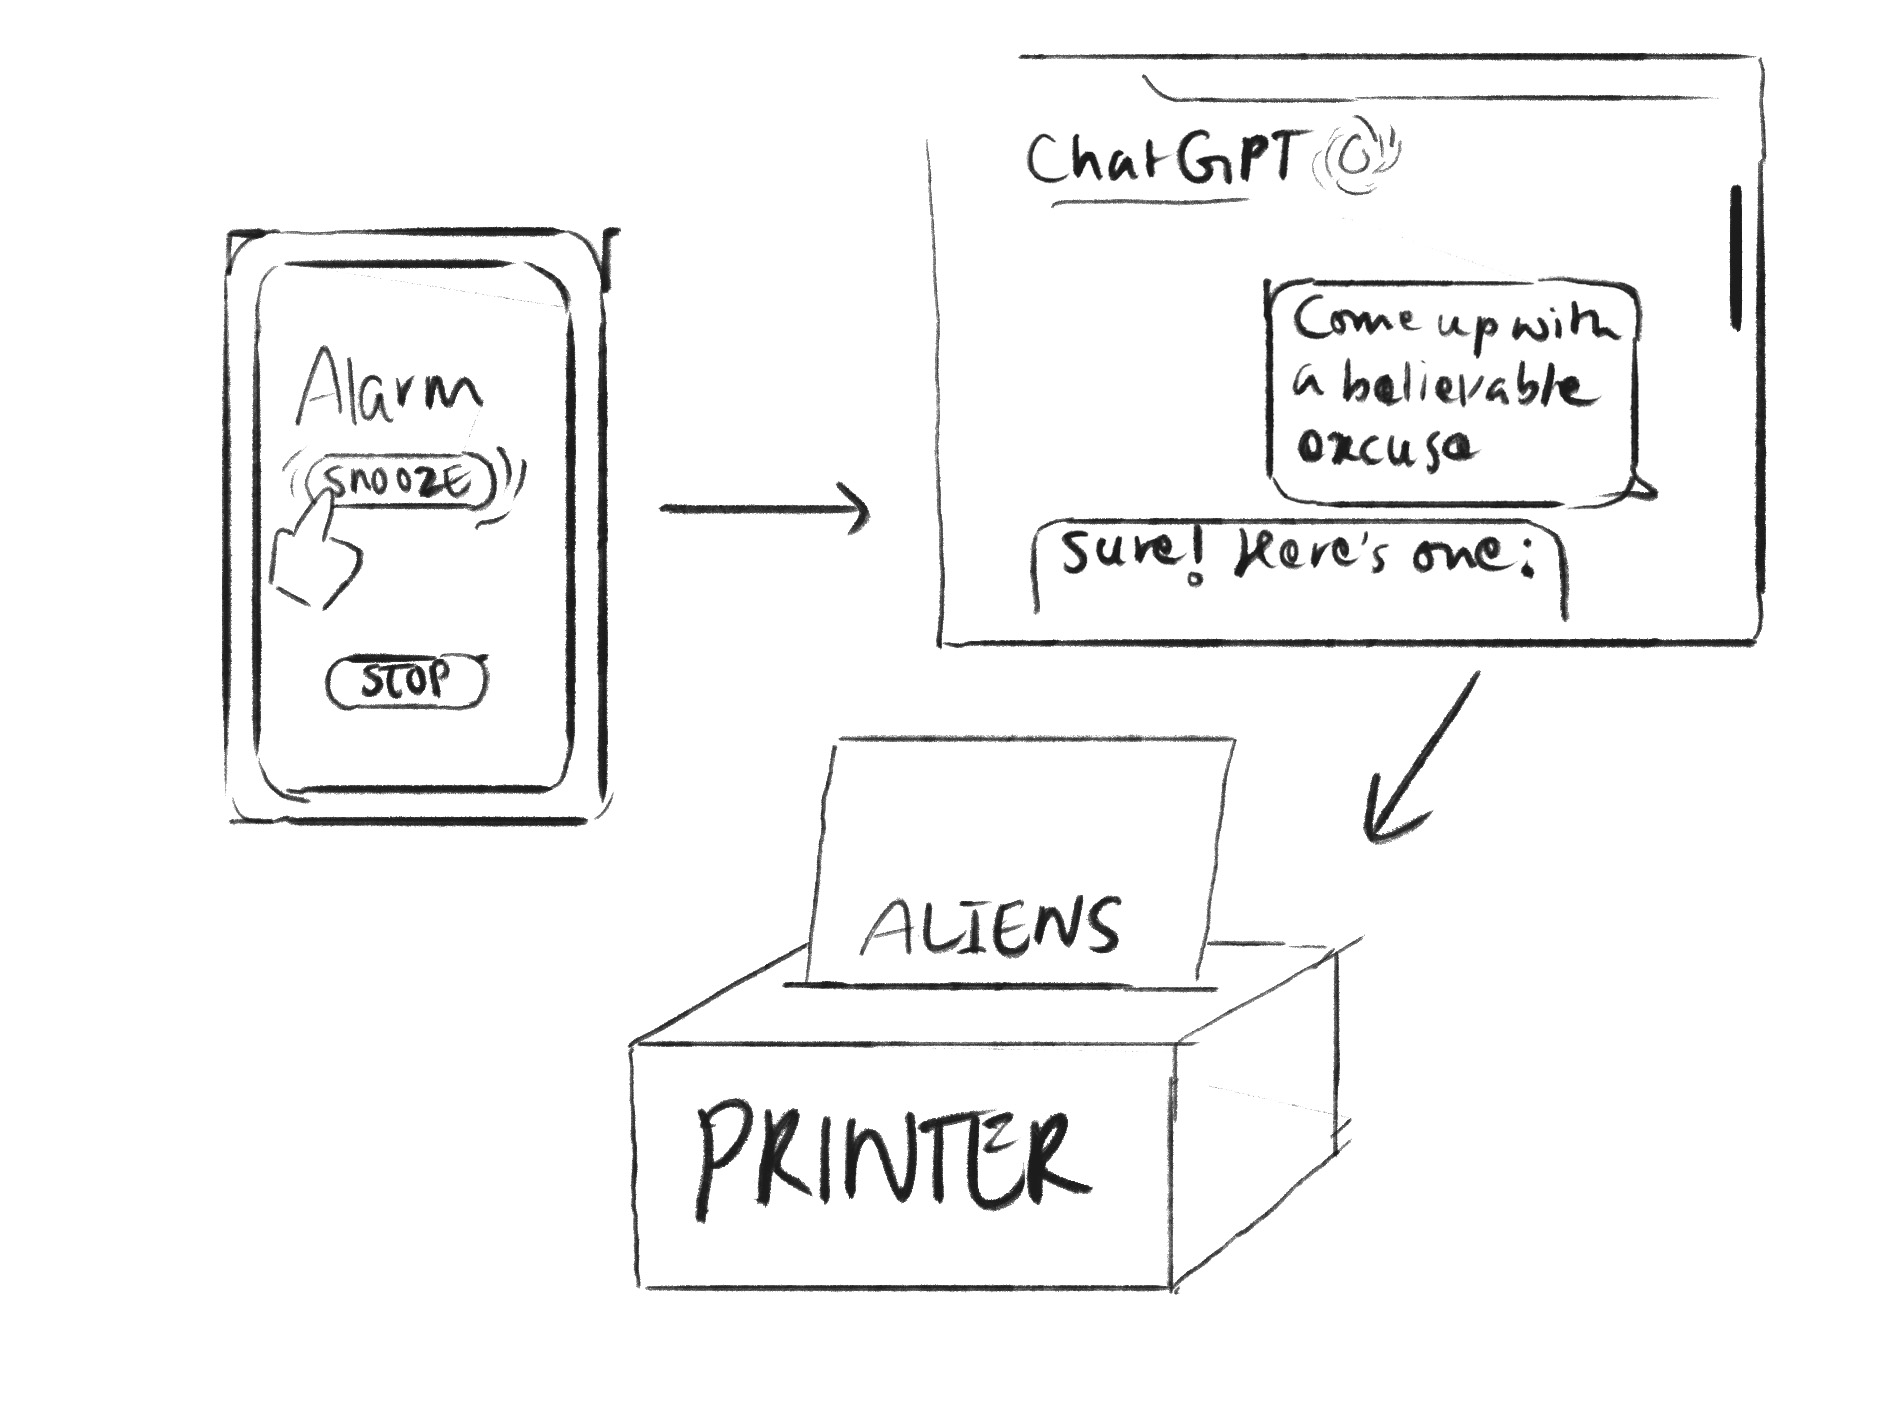 Alarm
SNOOZE
STOP
ChatGPT
Come up with
a believable
excuse
Sure! Here's one:
ALIENS
PRINTER